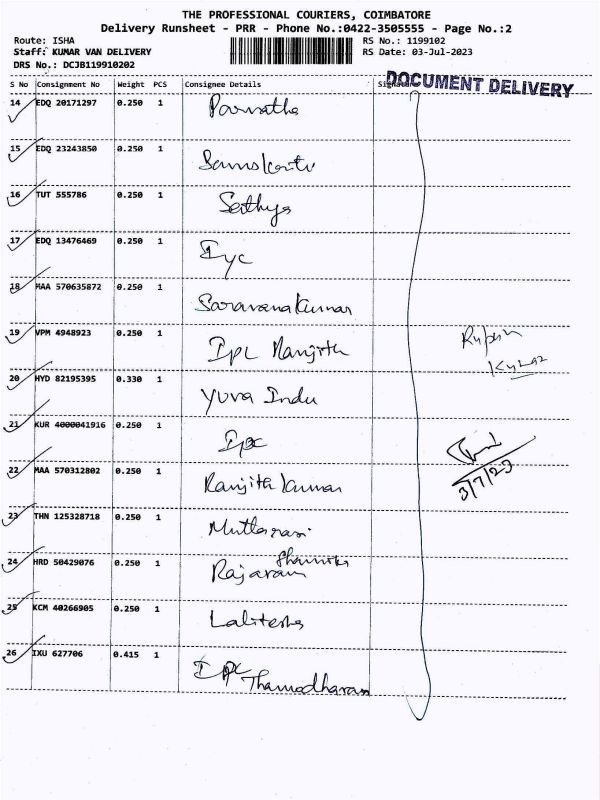 THE PROFESSIONAL COURIERS, COIMBATORE
Delivery Runsheet - PRR - Phone No.:0422-3505555 - Page No.:2
Route: ISHA RS No.: 1199102
Staff: KUMAR VAN DELIVERY RS Date: 03-Jul-2023
DRS No.: DCJB119910202
DOCUMENT DELIVERY
S No Consignment No Weight PCS Consignee Details
14 EDQ 20171297 0.250 1
15 EDQ 23243850 0.250 1
16 TUT 555786 0.250 1 Sathya
17 EDQ 13476469 0.250 1 Iyc
18 MAA 570635872 0.250 1 Saravana Kumar
19 VPM 4948923 0.250 1 Ranjith
20 HYD 82195395 0.330 1 Yuva Indu
21 KUR 4000041916 0.250 1
22 MAA 570312802 0.250 1 Ranjith Kumar
23 THN 125328718 0.250 1 Mutharasi
24 HRD 50429076 0.250 1 Rajaram
25 KCM 40266905 0.250 1
26 IXU 627706 0.415 1
Thamodharan
Kumar
3/7/23